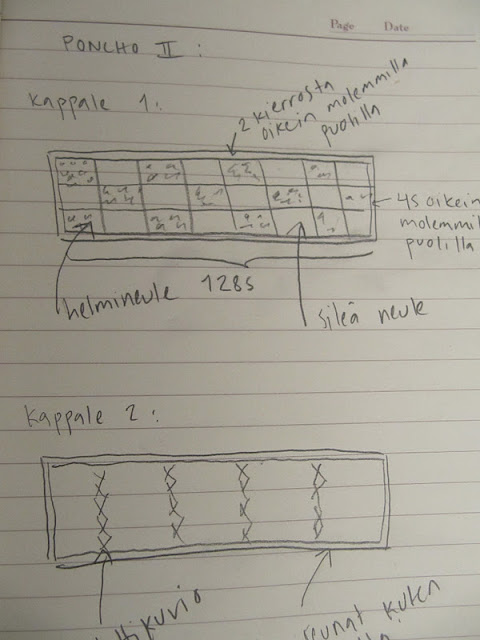 Page Date
PONCHO II :
Kappale 1:
2 kierrosta
oikein molemmilla
puolilla
4s oikein
puolilla
128s
helmineule
sileä neule
Kappale 2:
kuten